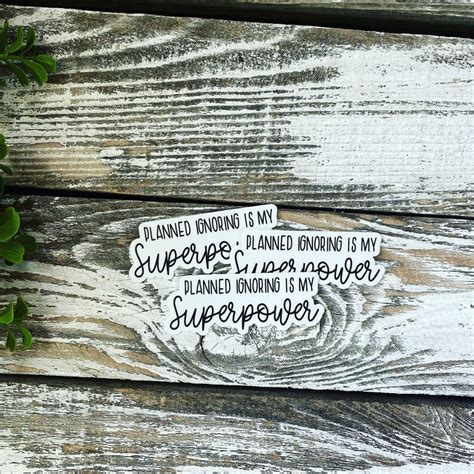 PLANNED IGNORING IS MY
Superpo
PLANNED IGNORING IS MY
Superpower
PLANNED IGNORING IS MY
Superpower